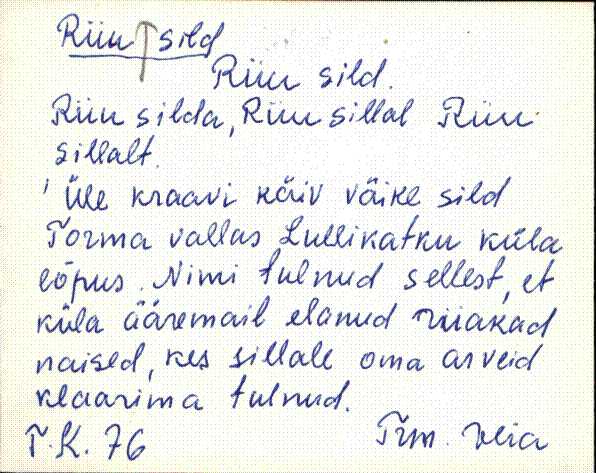 Riiu sild
Riiu sild.
Riiu silda, Riiu sillal Riiu
sillalt.
Üle kraavi käiv väike sild
Torma vallas Lullikatku küla
lõpus. Nimi tulnud sellest, et
küla ääremail elanud riiakad
naised, kes sillale oma arveid
klaarima tulnud.
T.K. 76 Trm.